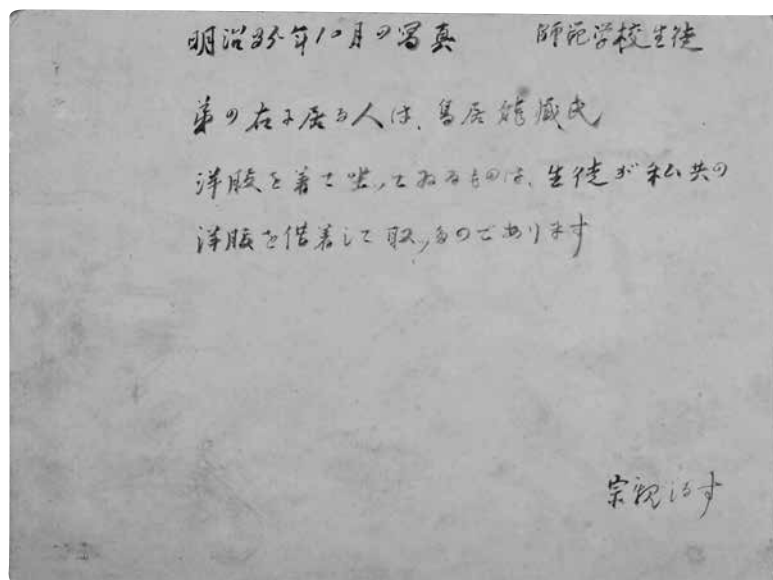 明治35年10月の冩真 師範学校生徒
弟の右に居る人は、鳥居龍蔵氏
洋服を着て坐ってゐるものは、生徒が私共の
洋服を借着して取ったのであります
宗親